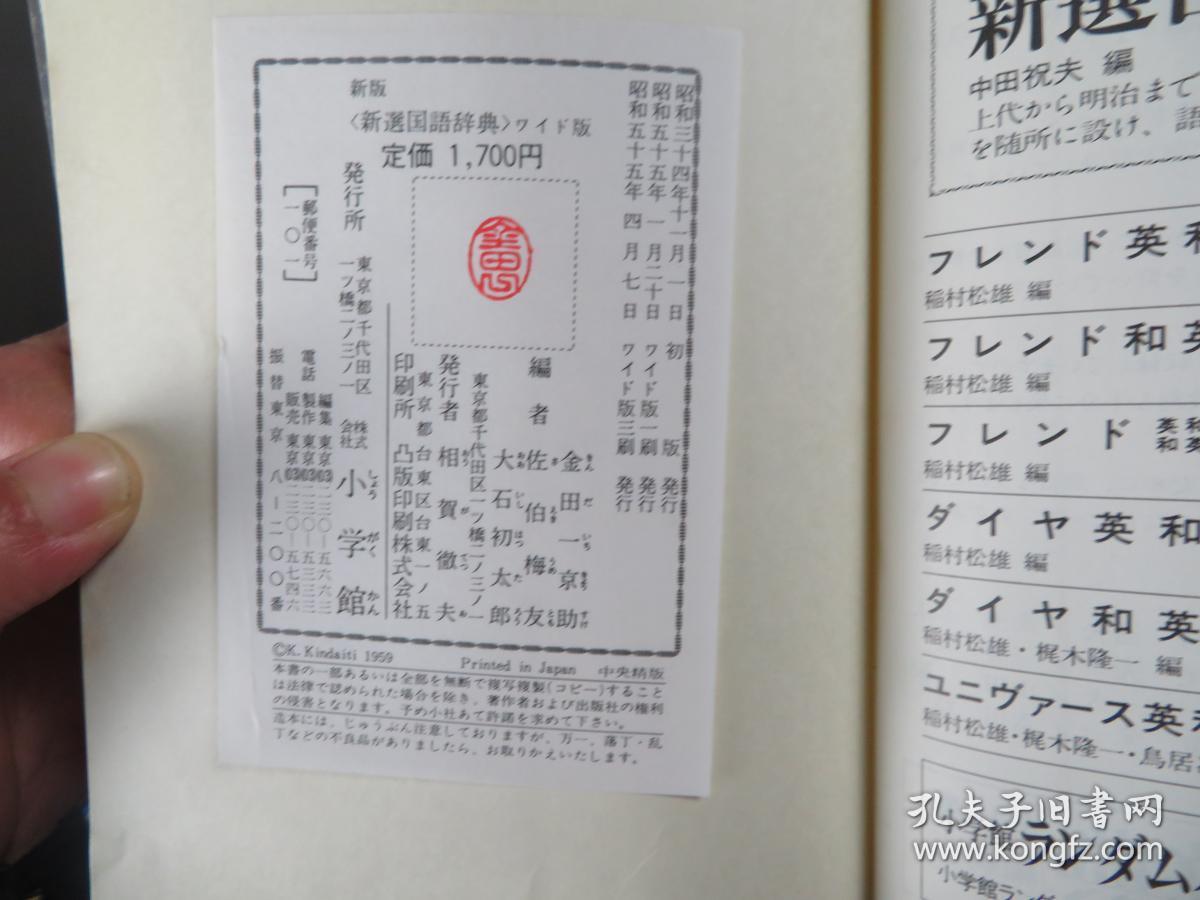 新版
〈新選国語辞典〉ワイド版
定価 1,700円
昭和三十四年十一月一日 初版 発行
昭和五十五年 一月二十日 ワイド版一刷 発行
昭和五十五年 四月七日 ワイド版三刷 発行
編者 金田一京助
佐伯梅友
大石初太郎
東京都千代田区一ツ橋二ノ三ノ一
発行者 相賀徹夫
東京都台東区台東一ノ五
印刷所 凸版印刷株式会社
発行所
東京都千代田区
一ツ橋二ノ三ノ一
株式会社 小学館
しょうがくかん
[郵便番号
一〇一]
電話
編集 東京03二三〇―五六六三
製作 東京03二三〇―五三三三
販売 東京03二三〇―五七四六
振替東京 八―二〇〇番
©K. Kindaiti 1959 Printed in Japan 中央精版
本書の一部あるいは全部を無断で複写複製(コピー)すること
は法律で認められた場合を除き、著作者および出版社の権利
の侵害となります。予め小社あて許諾を求めて下さい。
造本には、じゅうぶん注意しておりますが、万一、落丁・乱
丁などの不良品がありましたら、お取りかえいたします。
新選
中田祝夫 編
上代から明治まで
を随所に設け、語
フレンド英和
稲村松雄 編
フレンド和英
稲村松雄 編
フレンド 英和
和英
稲村松雄 編
ダイヤ英和
稲村松雄 編
ダイヤ和英
稲村松雄・梶木隆一 編
ユニヴァース英
稲村松雄・梶木隆一・鳥居
小学館 ランダム
小学館ラン
孔夫子旧书网
www.kongfz.com